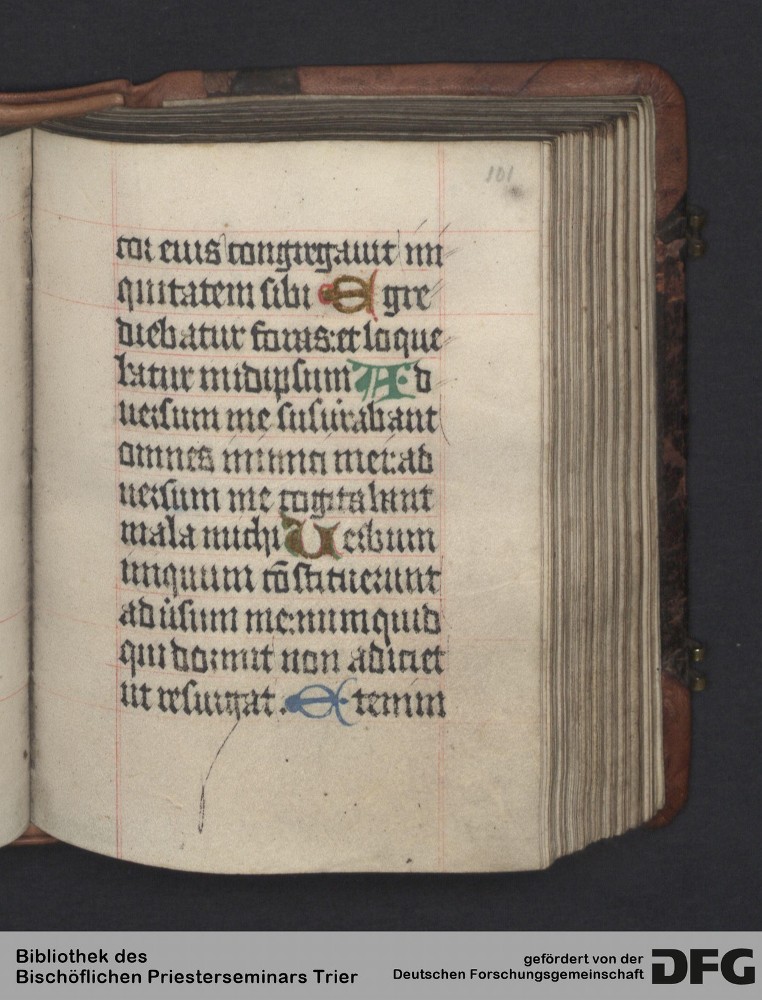 101
cor eius congregauit ini
quitatem sibi Egre
diebatur foras: et loque
batur in idipsum Ad
uersum me susurrabant
omnes inimici mei: ad
uersum me cogitabant
mala michi Uerbum
iniquum cōstituerunt
aduersum me: numquid
qui dormit non adiciet
ut resurgat. Etenim
Bibliothek des
Bischöflichen Priesterseminars Trier
gefördert von der
Deutschen Forschungsgemeinschaft
DFG